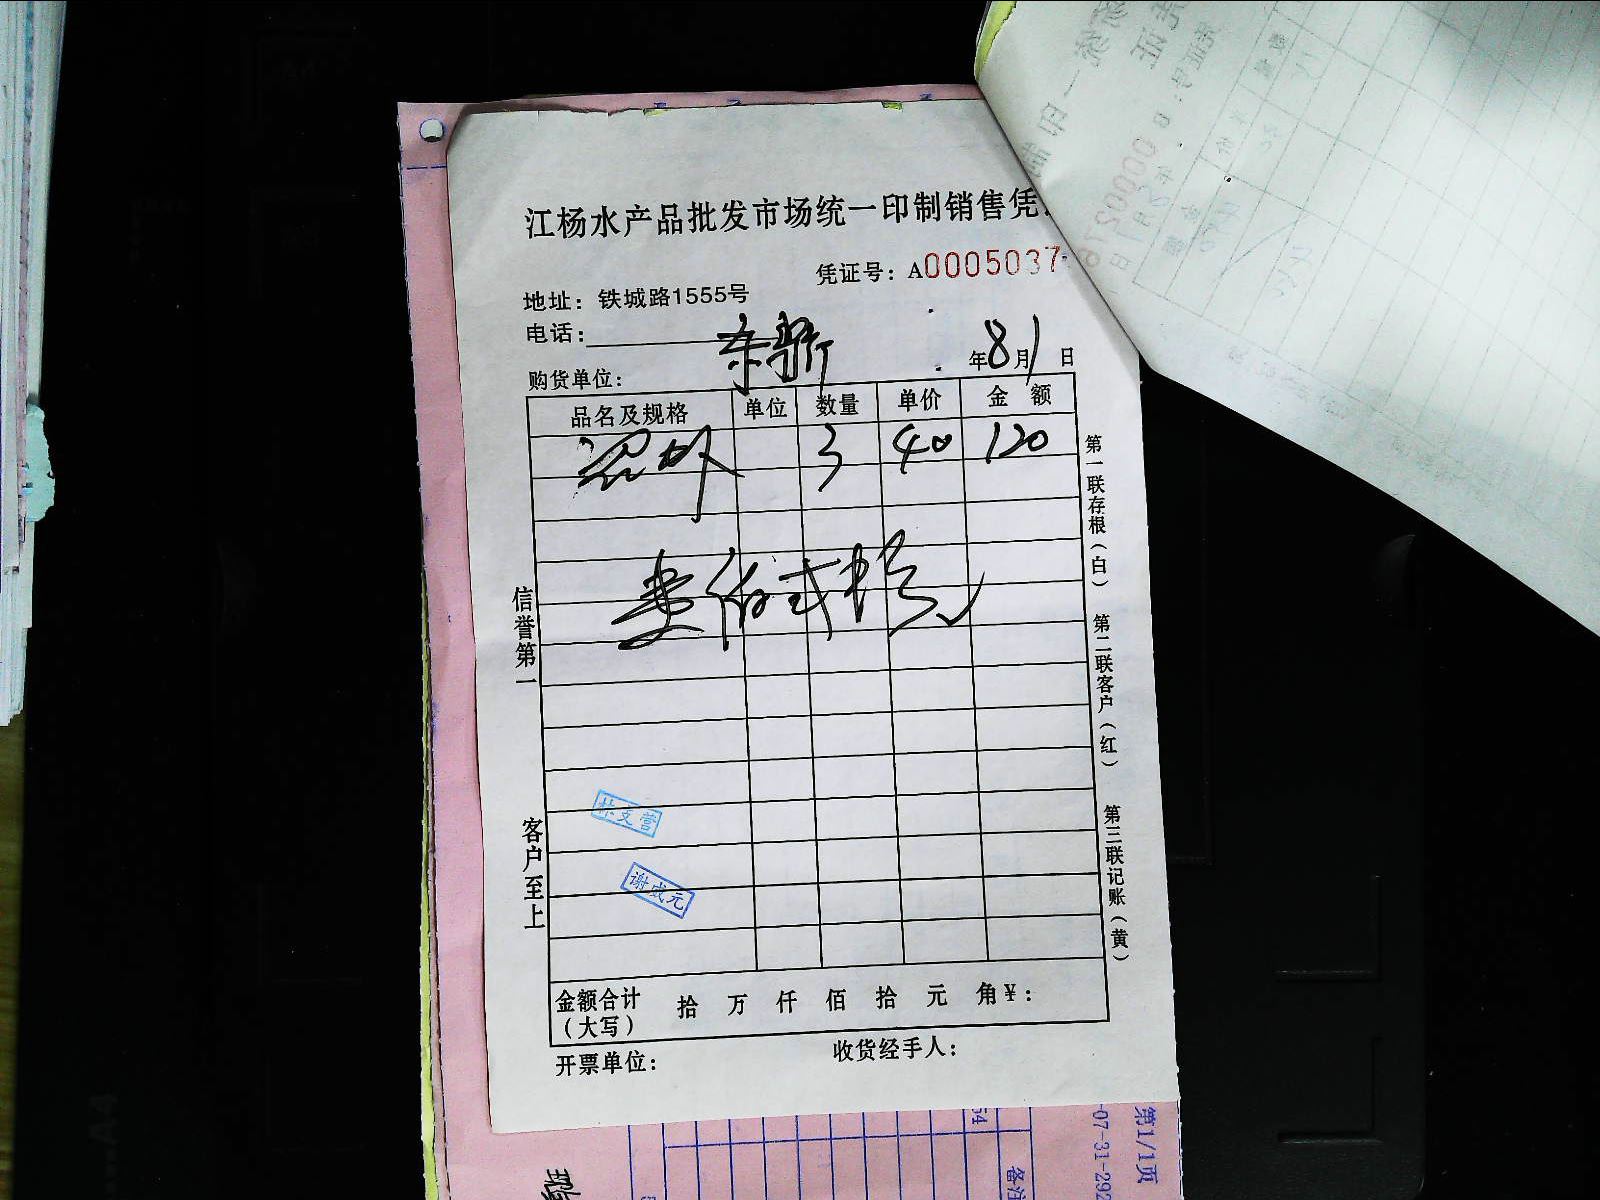 江杨水产品批发市场统一印制销售凭
凭证号：A0005037
地址：铁城路1555号
电话：
购货单位： 东新 年8月1日
品名及规格 单位 数量 单价 金额
3 40 120
壹佰贰拾元
信誉第一
客户至上
第一联存根（白）
第二联客户（红）
第三联记账（黄）
谢成元
金额合计（大写） 拾 万 仟 佰 拾 元 角 ¥：
开票单位： 收货经手人：
第1/1页
-07-31-292
备注
54